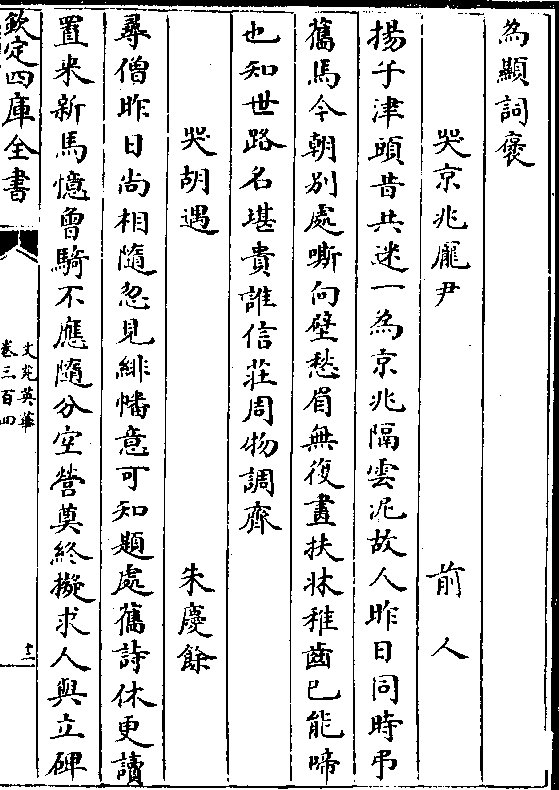 為顯詞褒
哭京兆龎尹　前人
揚子津頭昔共迷一為京兆隔雲泥故人昨日同時弔
舊馬今朝別處嘶向壁愁眉無復畫扶牀稚齒已能啼
也知世路名堪貴誰信莊周物調齊
哭胡遇　朱慶餘
尋僧昨日尚相隨忽見緋幡意可知題處舊詩休更讀
置來新馬憶曾騎不應隨分空營奠終擬求人與立碑
欽定四庫全書
文苑英華
卷三百四
十二